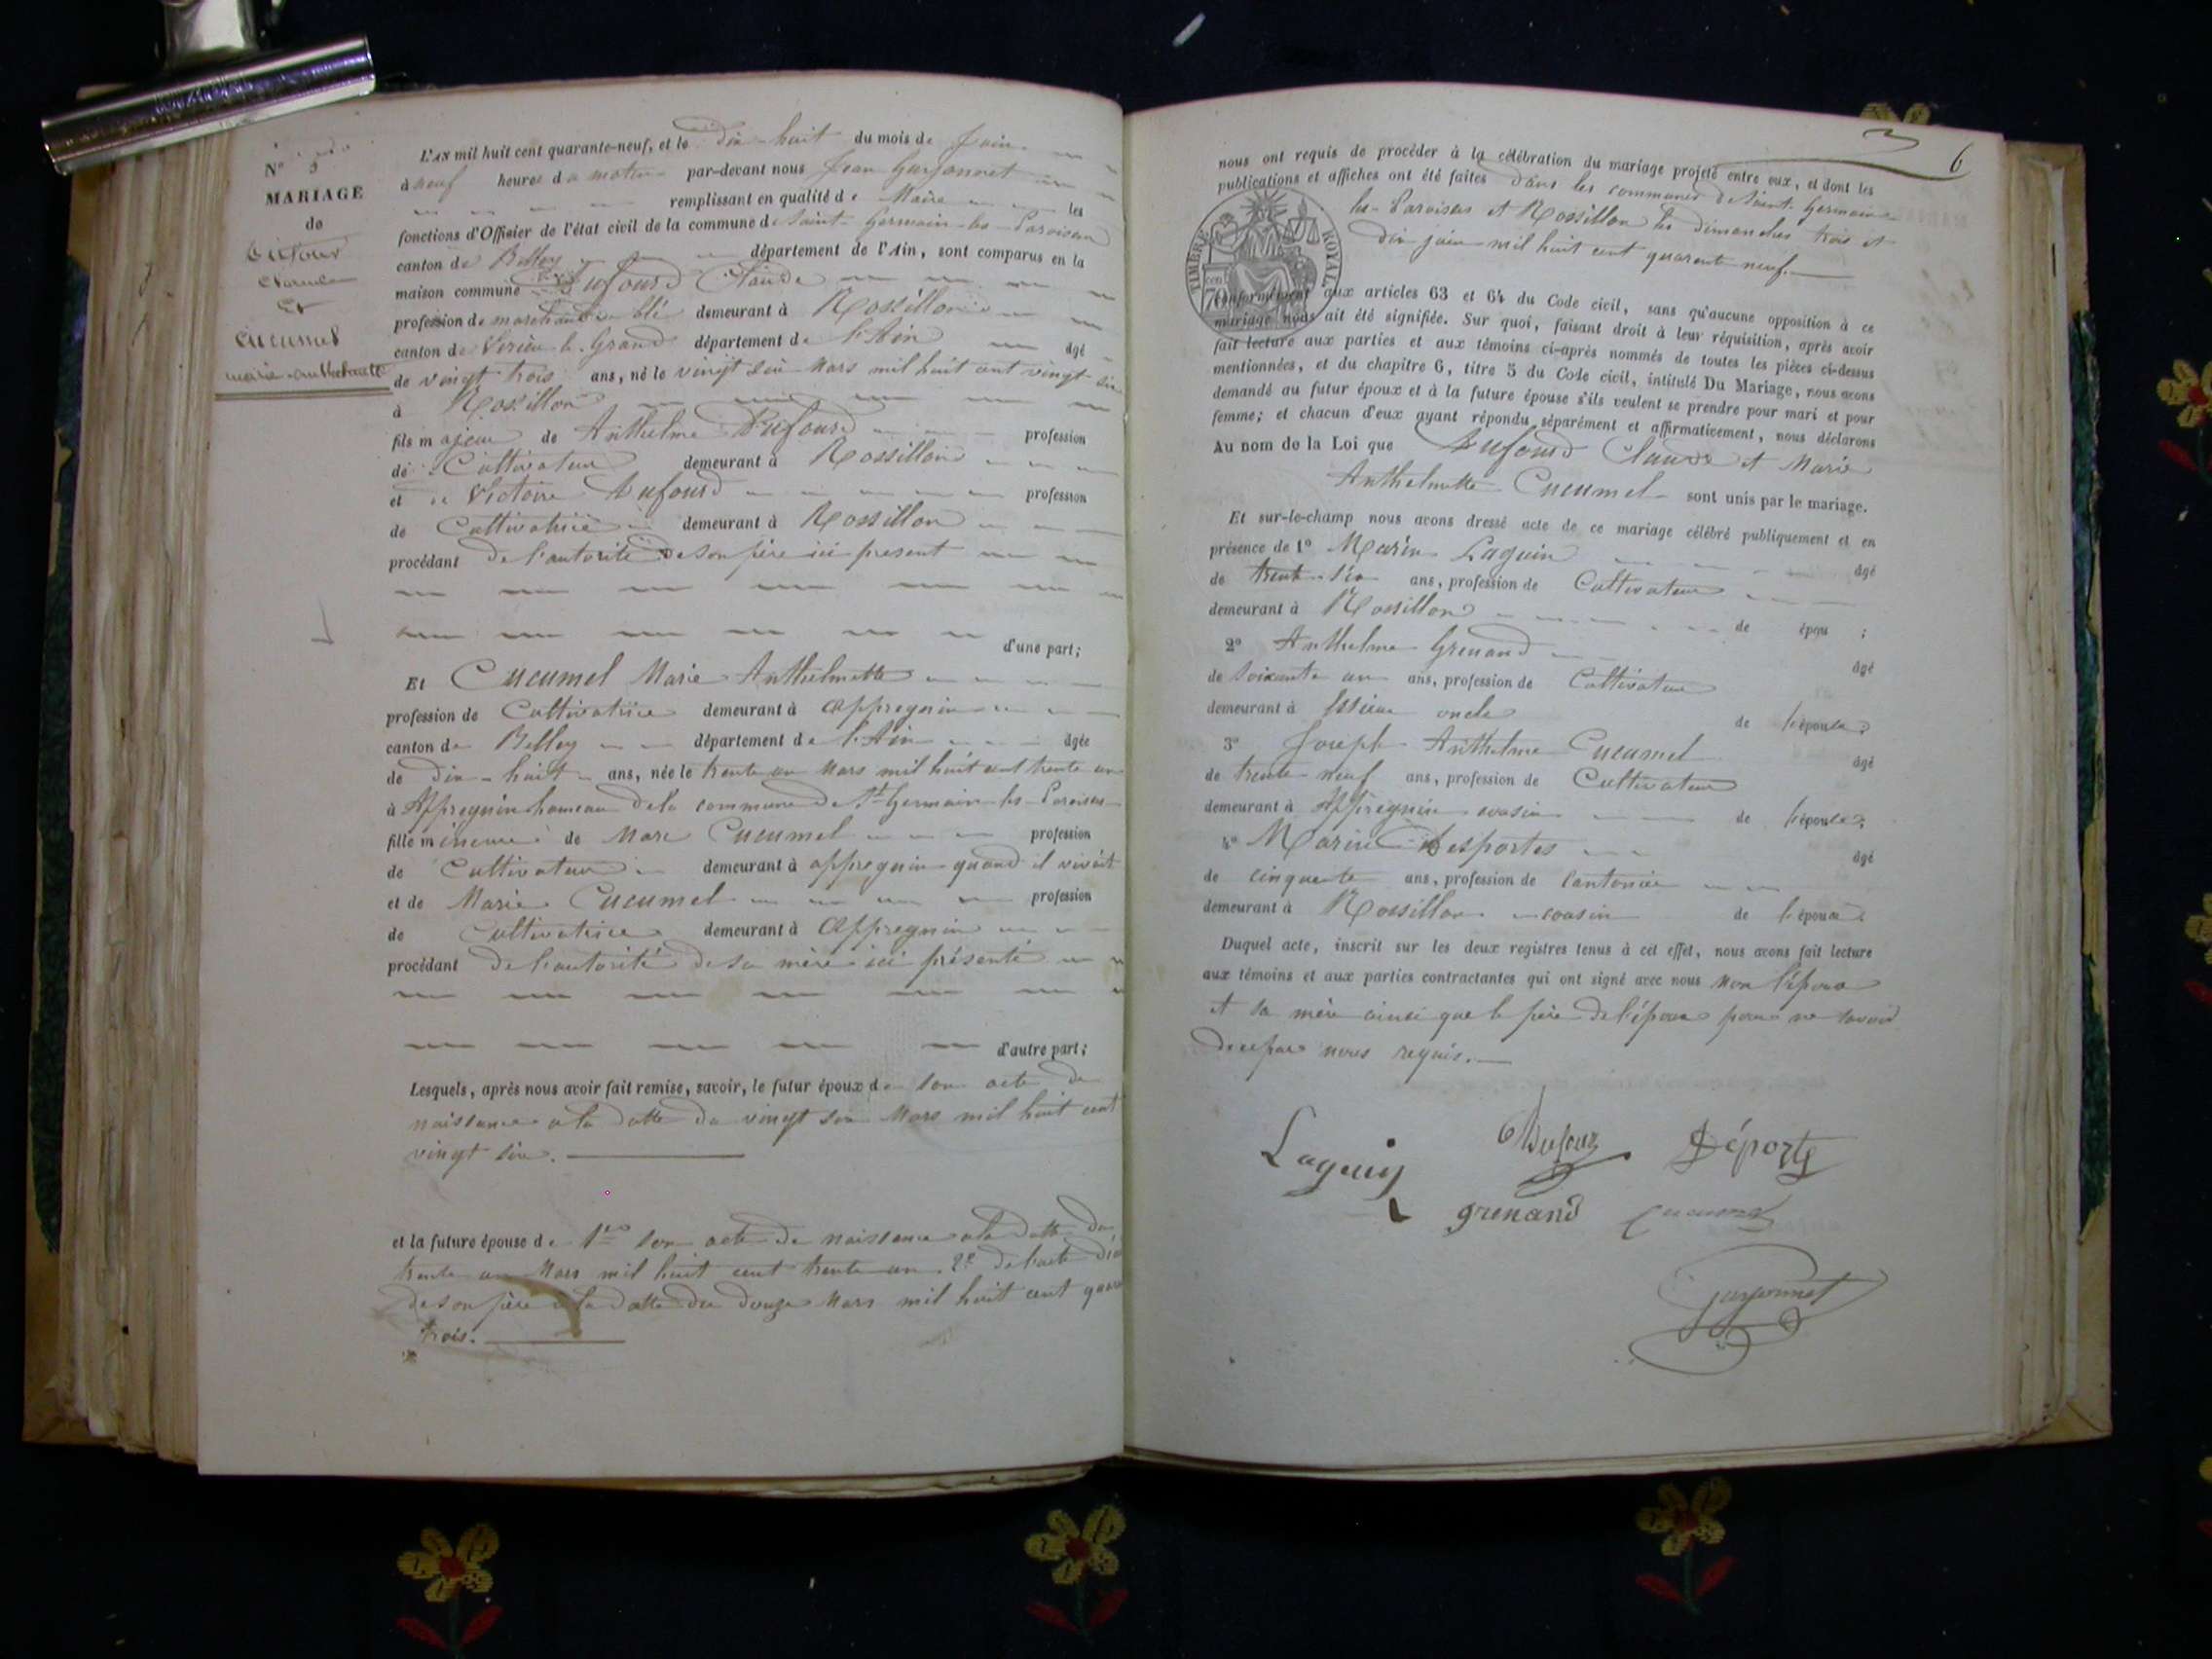 N° 5
MARIAGE
de
Dufour
Claude
Et
Cucumel
marie-anthelmette
L'AN mil huit cent quarante-neuf, et le dix-huit du mois de Juin
à neuf heures du matin par-devant nous Jean Garjonnet
remplissant en qualité de Maire les
fonctions d'Officier de l'état civil de la commune de Saint-Germain-les-Paroisses
canton de Belley département de l'Ain, sont comparus en la
maison commune Dufourd Claude
profession de marchand de blé demeurant à Rossillon
canton de Virieu-le-Grand département de l'Ain âgé
de vingt trois ans, né le vingt six Mars mil huit cent vingt six
à Rossillon
fils majeur de Anthelme Dufourd profession
de Cultivateur demeurant à Rossillon
et de Victoire Dufourd profession
de Cultivatrice demeurant à Rossillon
procédant de l'autorité de son père ici present
d'une part;
Et Cucumel Marie Anthelmette
profession de Cultivatrice demeurant à Appregnin
canton de Belley département de l'Ain âgée
de dix-huit ans, née le trente un Mars mil huit cent trente un
à Appregnin hameau de la commune de St Germain-les-Paroisses
fille mineure de Marc Cucumel profession
de Cultivateur demeurant à appregnin quand il vivait
et de Marie Cucumel profession
de Cultivatrice demeurant à Appregnin
procédant de l'autorité de sa mère ici présente
d'autre part;
Lesquels, après nous avoir fait remise, savoir, le futur époux de son acte de
naissance a la datte du vingt six Mars mil huit cent
vingt six.
et la future épouse de 1° son acte de naissance a la datte du
trente un Mars mil huit cent trente un. 2° de l'acte
de son père a la datte du douze Mars mil huit cent
trois.
6
nous ont requis de procéder à la célébration du mariage projeté entre eux, et dont les
publications et affiches ont été faites dans les communes de Saint-Germain-
les-Paroisses et Rossillon les dimanches trois et
dix juin mil huit cent quarante neuf.
TIMBRE ROYAL
70 cen
conformément aux articles 63 et 64 du Code civil, sans qu'aucune opposition à ce
mariage nous ait été signifiée. Sur quoi, faisant droit à leur réquisition, après avoir
fait lecture aux parties et aux témoins ci-après nommés de toutes les pièces ci-dessus
mentionnées, et du chapitre 6, titre 5 du Code civil, intitulé Du Mariage, nous avons
demandé au futur époux et à la future épouse s'ils veulent se prendre pour mari et pour
femme; et chacun d'eux ayant répondu séparément et affirmativement, nous déclarons
Au nom de la Loi que Dufourd Claude et Marie
Anthelmette Cucumel sont unis par le mariage.
Et sur-le-champ nous avons dressé acte de ce mariage célébré publiquement et en
présence de 1° Marin Laguin âgé
de trente-six ans, profession de Cultivateur
demeurant à Rossillon de épou ;
2° Anthelme Grenand âgé
de soixante un ans, profession de Cultivateur
demeurant à Essieux oncle de l'épouse;
3° Joseph Anthelme Cucumel âgé
de trente-neuf ans, profession de Cultivateur
demeurant à Appregnin cousin de l'épouse;
4° Marin Desportes âgé
de cinquante ans, profession de Cantonier
demeurant à Rossillon cousin de l'épouse.
Duquel acte, inscrit sur les deux registres tenus à cet effet, nous avons fait lecture
aux témoins et aux parties contractantes qui ont signé avec nous non l'épouse
et sa mère ainsi que le père de l'époux pour ne savoir
de ce par nous requis.
Laguin Dufour Déporte
grenand Cucumel
Garjonnet